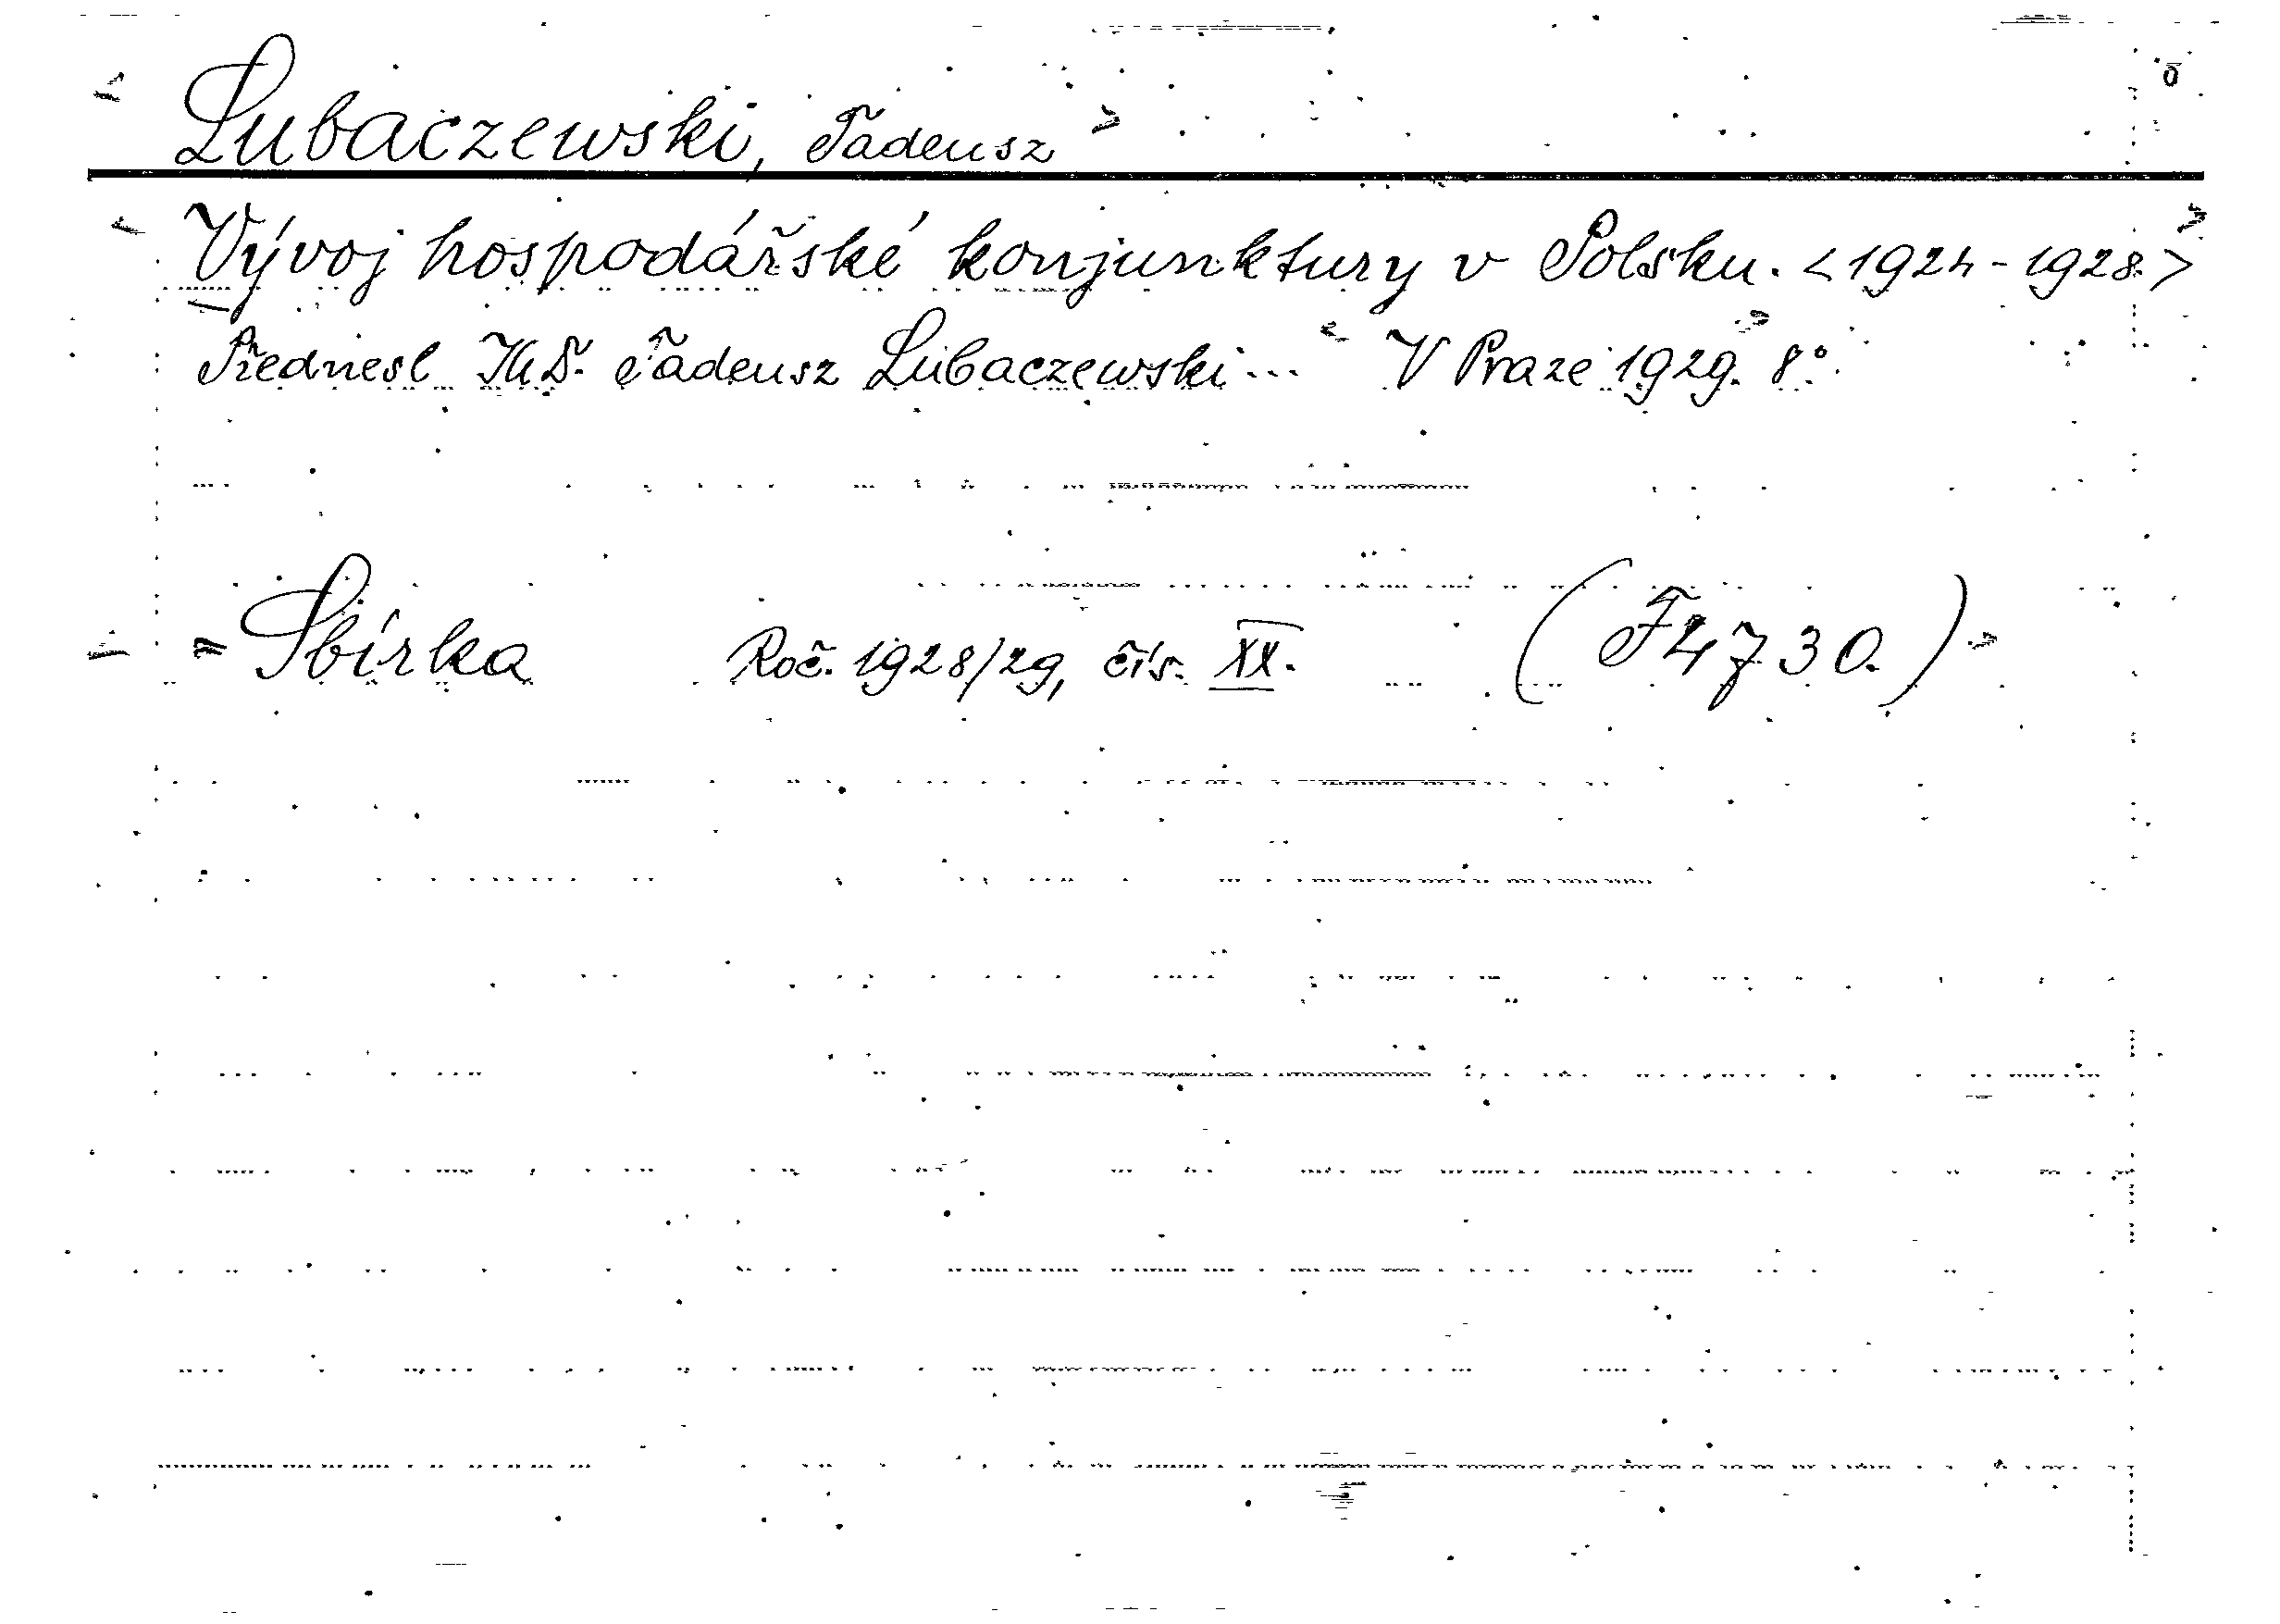 Lubaczewski, Tadeusz
Vývoj hospodářské konjunktury v Polsku. <1924-1928>
Přednesl Tadeusz Lubaczewski... V Praze 1929. 8°.
= Sbírka Roč. 1928/29, čís. XX. (F 4730.)